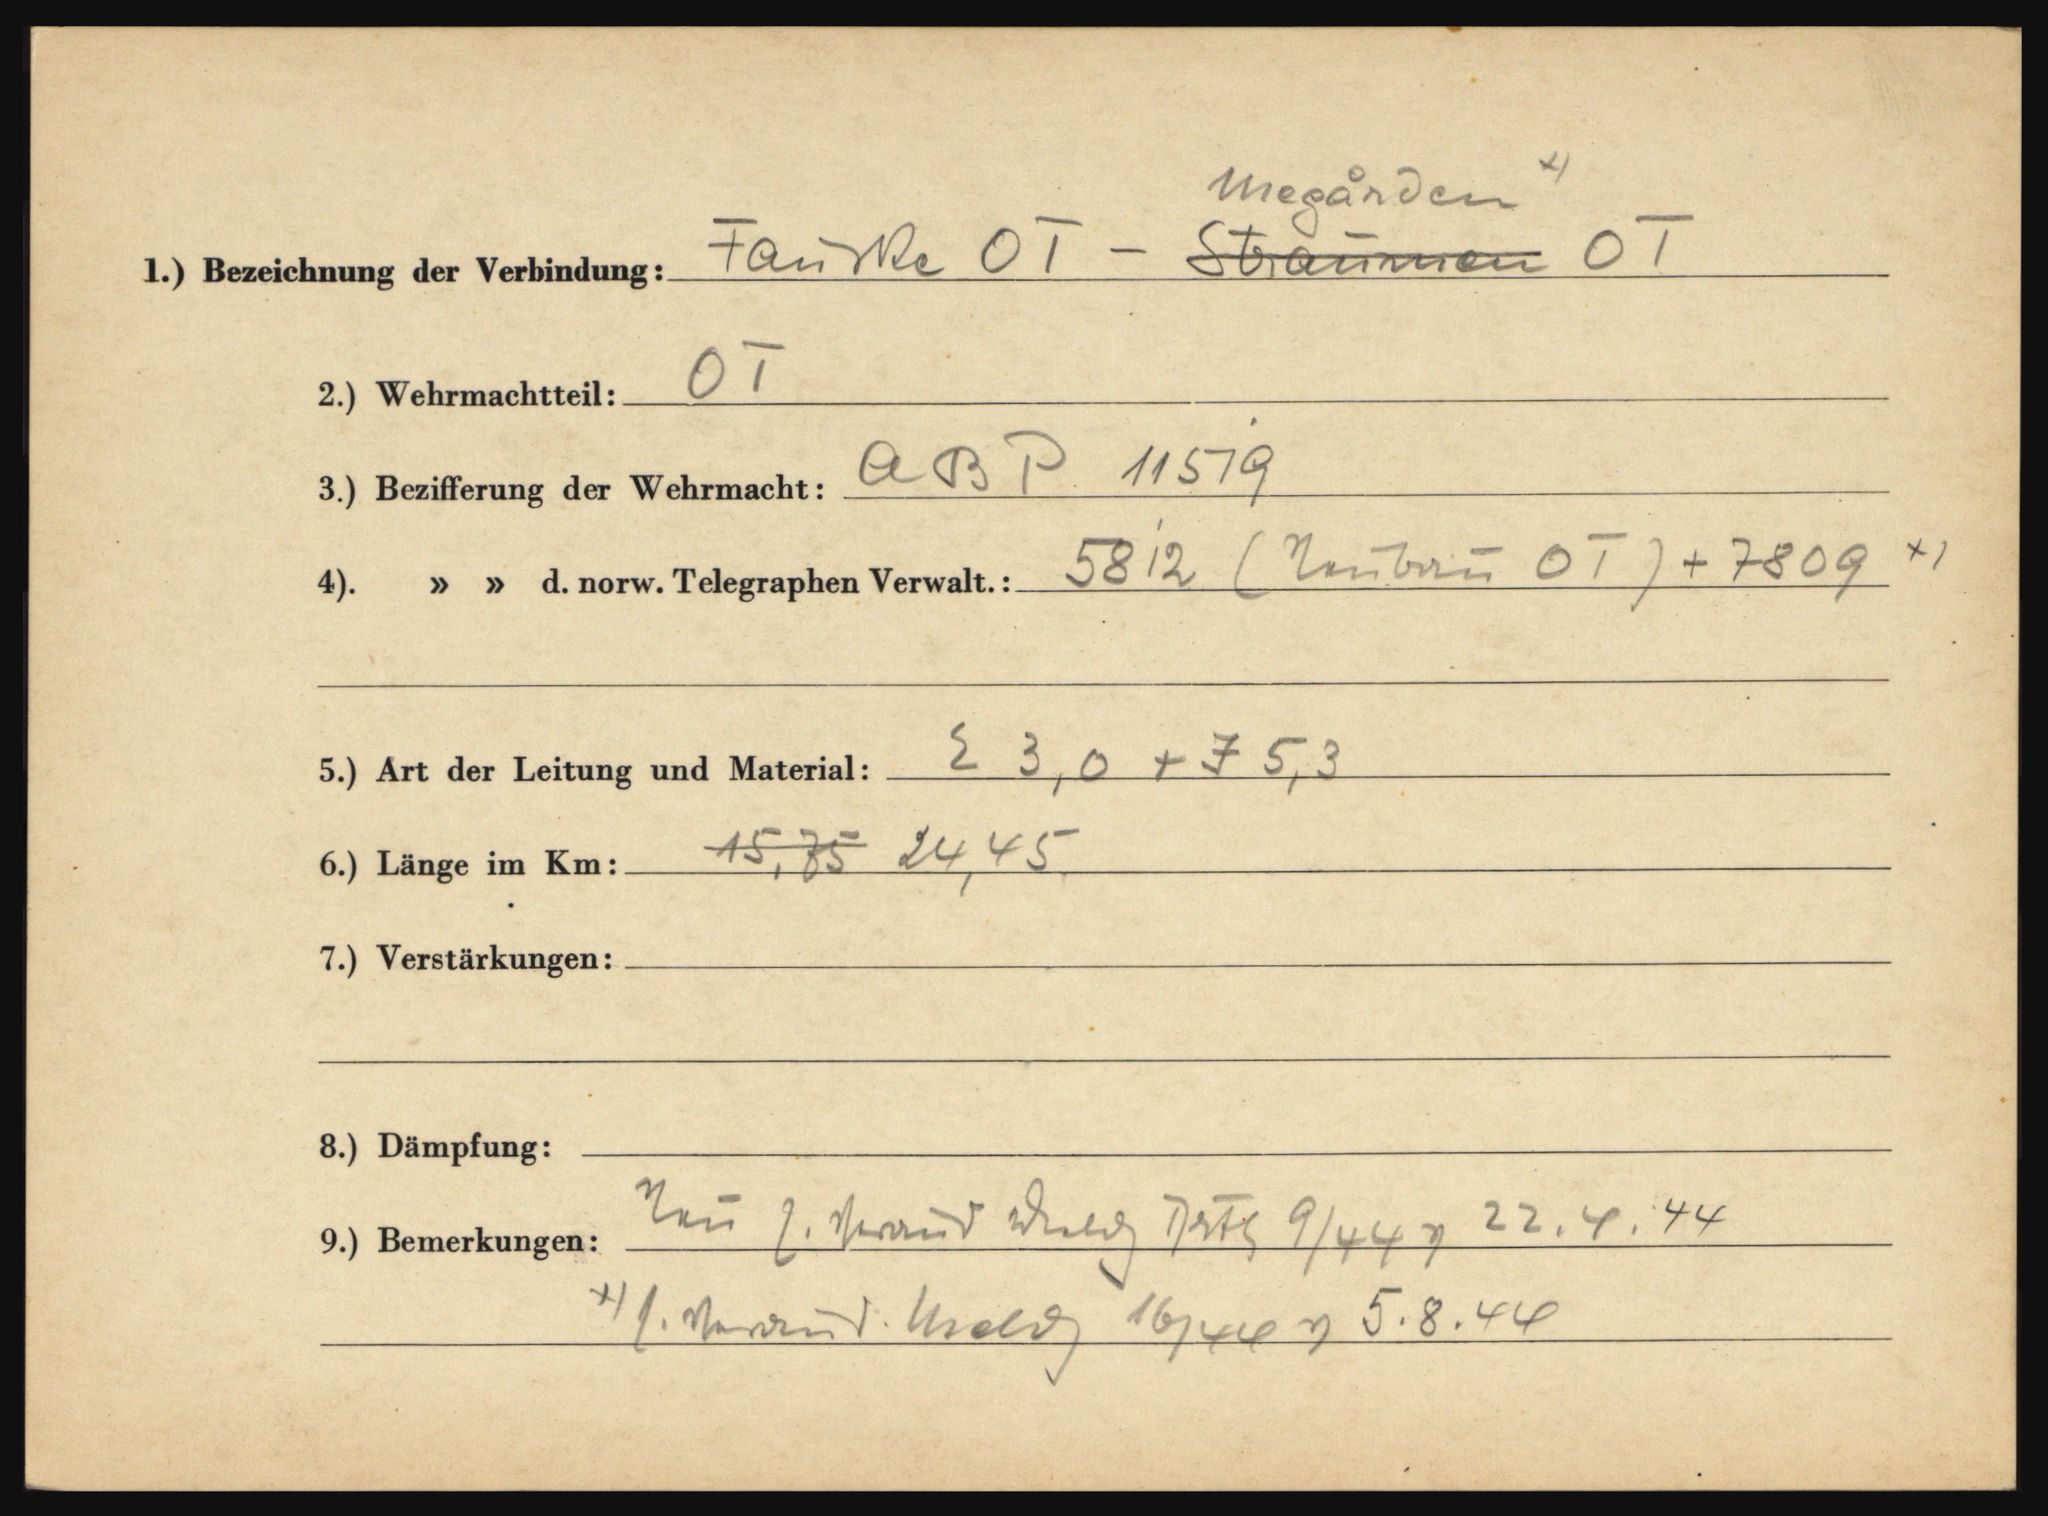 Megården x)
1.) Bezeichnung der Verbindung: Fauske OT - Straumen OT
2.) Wehrmachtteil: OT
3.) Bezifferung der Wehrmacht: ABP 11519
4). » » d. norw. Telegraphen Verwalt.: 5812 (Neubau OT) + 7809 x)
5.) Art der Leitung und Material: 3,0 + 5,3
6.) Länge im Km: 15,75 24,45
7.) Verstärkungen:
8.) Dämpfung:
9.) Bemerkungen: Neu 9/44 v 22.4.44
x) Meldg 16/44 v 5.8.44